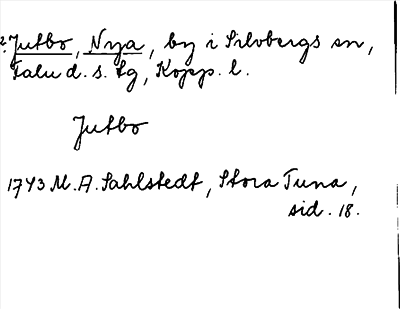 2. Jutbo, Nya, by i Silvbergs sn,
Falu d. s. lg, Kopp. l.
Jutbo
1743 M. A. Sahlstedt, Stora Tuna,
sid. 18.